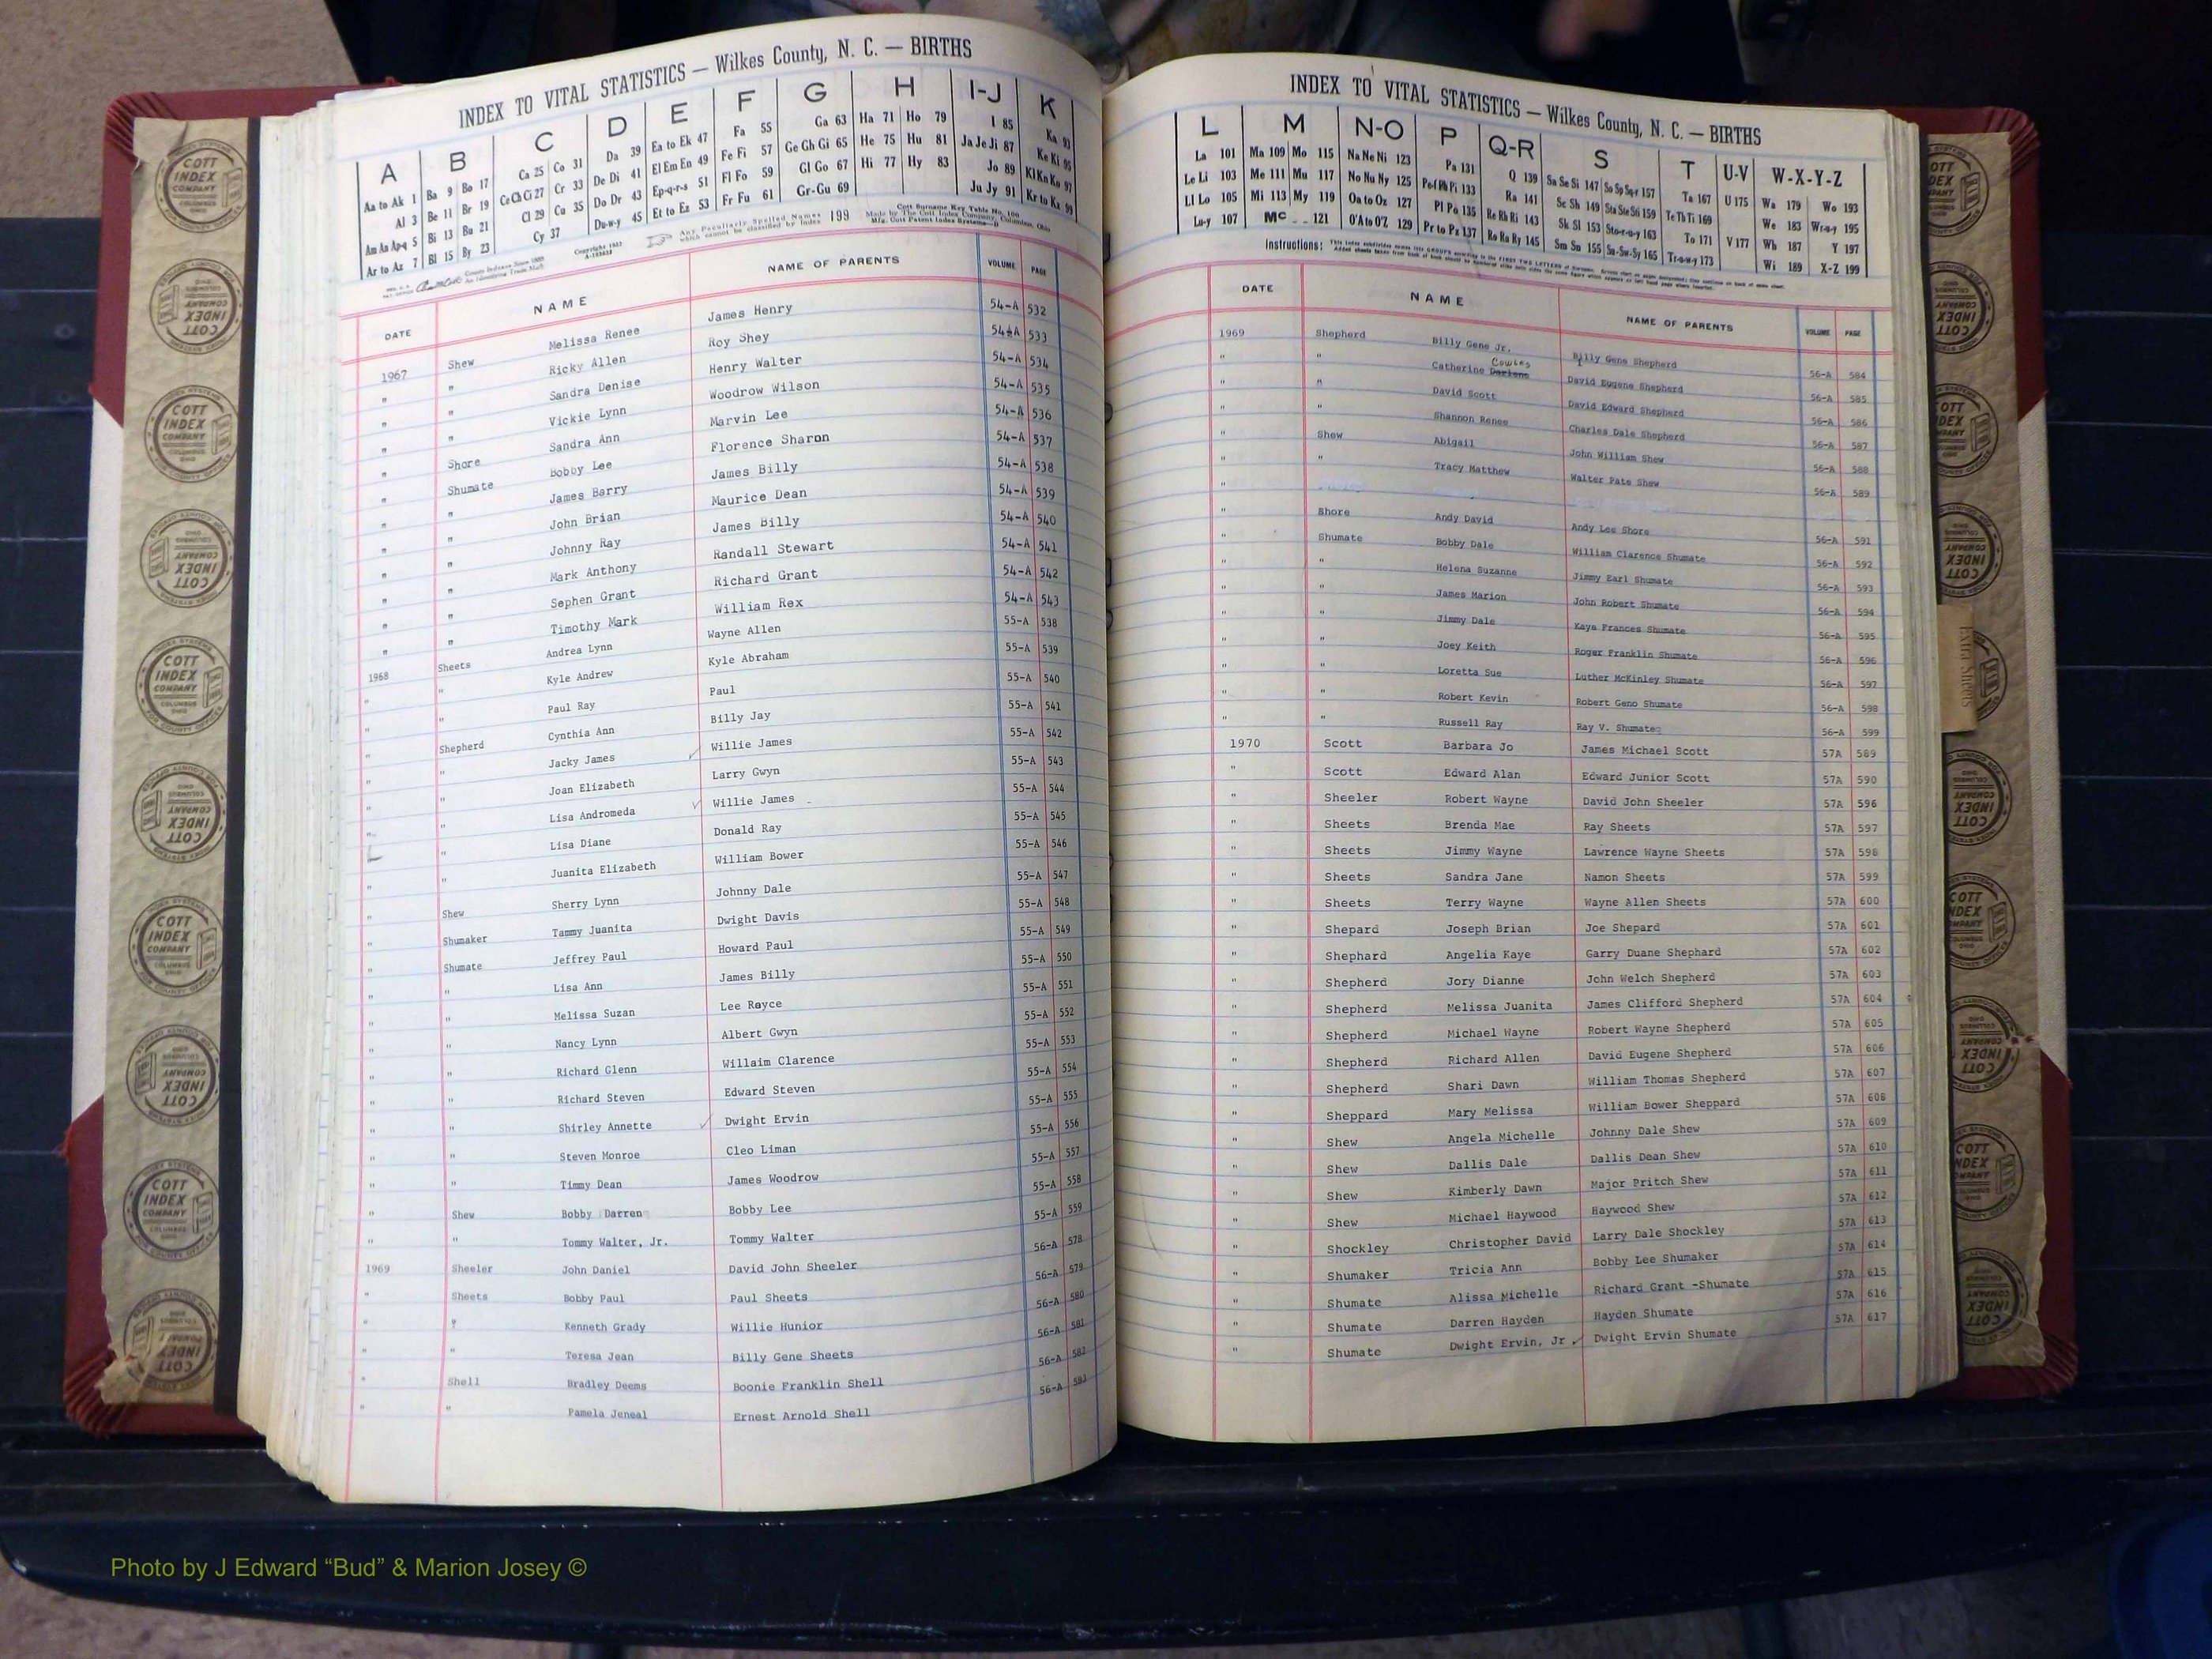 INDEX TO VITAL STATISTICS — Wilkes County, N. C. — BIRTHS
A B C D E F G H I-J K
Aa to Ak 1 Ba 9 Bo 17 Ca 25 Co 31 Da 39 Ea to Ek 47 Fa 55 Ga 63 Ha 71 Ho 79 I 85 Ka 93
Al 3 Be 11 Br 19 Ce Ch Ci 27 Cr 33 De Di 41 El Em En 49 Fe Fi 57 Ge Gh Gi 65 He 75 Hu 81 Ja Je Ji 87 Ke Ki 95
Am An Ap-q 5 Bi 13 Bu 21 Cl 29 Cu 35 Do Dr 43 Ep-q-r-s 51 Fl Fo 59 Gl Go 67 Hi 77 Hy 83 Jo 89 Kl Kn Ko 97
Ar to Az 7 Bl 15 By 23 Cy 37 Du-w-y 45 Et to Ez 53 Fr Fu 61 Gr-Gu 69 Ju Jy 91 Kr to Kz 99
Any Peculiarly Spelled Names which cannot be classified by Index 199
Cott Surname Key Table No. 100
Made by The Cott Index Company, Columbus, Ohio
DATE NAME NAME OF PARENTS VOLUME PAGE
1967 Shew Melissa Renee James Henry 54-A 532
" " Ricky Allen Roy Shey 54-A 533
" " Sandra Denise Henry Walter 54-A 534
" " Vickie Lynn Woodrow Wilson 54-A 535
" Shore Sandra Ann Marvin Lee 54-A 536
" Shumate Bobby Lee Florence Sharon 54-A 537
" " James Barry James Billy 54-A 538
" " John Brian Maurice Dean 54-A 539
" " Johnny Ray James Billy 54-A 540
" " Mark Anthony Randall Stewart 54-A 541
" " Sephen Grant Richard Grant 54-A 542
" " Timothy Mark William Rex 54-A 543
1968 Sheets Andrea Lynn Wayne Allen 55-A 538
" " Kyle Andrew Kyle Abraham 55-A 539
" " Paul Ray Paul 55-A 540
" Shepherd Cynthia Ann Billy Jay 55-A 541
" " Jacky James Willie James 55-A 542
" " Joan Elizabeth Larry Gwyn 55-A 543
" " Lisa Andromeda Willie James 55-A 544
" " Lisa Diane Donald Ray 55-A 545
" " Juanita Elizabeth William Bower 55-A 546
" Shew Sherry Lynn Johnny Dale 55-A 547
" Shumaker Tammy Juanita Dwight Davis 55-A 548
" Shumate Jeffrey Paul Howard Paul 55-A 549
" " Lisa Ann James Billy 55-A 550
" " Melissa Suzan Lee Rayce 55-A 551
" " Nancy Lynn Albert Gwyn 55-A 552
" " Richard Glenn Willaim Clarence 55-A 553
" " Richard Steven Edward Steven 55-A 554
" " Shirley Annette Dwight Ervin 55-A 555
" " Steven Monroe Cleo Liman 55-A 556
" " Timmy Dean James Woodrow 55-A 557
" Shew Bobby Darren Bobby Lee 55-A 558
" " Tommy Walter, Jr. Tommy Walter 55-A 559
1969 Sheeler John Daniel David John Sheeler 56-A 578
" Sheets Bobby Paul Paul Sheets 56-A 579
" " Kenneth Grady Willie Hunior 56-A 580
" " Teresa Jean Billy Gene Sheets 56-A 581
" Shell Bradley Deems Boonie Franklin Shell 56-A 582
" " Pamela Jeneal Ernest Arnold Shell 56-A 583
INDEX TO VITAL STATISTICS — Wilkes County, N. C. — BIRTHS
L M N-O P Q-R S T U-V W-X-Y-Z
La 101 Ma 109 Mo 115 Na Ne Ni 123 Pa 131 Q 139 Sa Se Si 147 So Sp Sq-r 157 Ta 167 U 175 Wa 179 Wo 193
Le Li 103 Me 111 Mu 117 No Nu Ny 125 Pe-f Ph Pi 133 Ra 141 Sc Sh 149 Sta Ste Sti 159 Te Th Ti 169 We 183 Wr-u-y 195
Ll Lo 105 Mi 113 My 119 Oa to Oz 127 Pl Po 135 Re Rh Ri 143 Sk Sl 153 Sto-r-u-y 163 To 171 V 177 Wh 187 Y 197
Lu-y 107 Mc 121 O'A to O'Z 129 Pr to Pz 137 Ro Ru Ry 145 Sm Sn 155 Su-Sw-Sy 165 Tr-u-w-y 173 Wi 189 X-Z 199
Instructions:
DATE NAME NAME OF PARENTS VOLUME PAGE
1969 Shepherd Billy Gene Jr. Billy Gene Shepherd 56-A 584
" " Catherine Cowles David Eugene Shepherd 56-A 585
" " David Scott David Edward Shepherd 56-A 586
" " Shannon Renee Charles Dale Shepherd 56-A 587
" Shew Abigail John William Shew 56-A 588
" " Tracy Matthew Walter Pate Shew 56-A 589
" Shore Andy David Andy Lee Shore 56-A 591
" Shumate Bobby Dale William Clarence Shumate 56-A 592
" " Helena Suzanne Jimmy Earl Shumate 56-A 593
" " James Marion John Robert Shumate 56-A 594
" " Jimmy Dale Kaye Frances Shumate 56-A 595
" " Joey Keith Roger Franklin Shumate 56-A 596
" " Loretta Sue Luther McKinley Shumate 56-A 597
" " Robert Kevin Robert Geno Shumate 56-A 598
" " Russell Ray Ray V. Shumate 56-A 599
1970 Scott Barbara Jo James Michael Scott 57A 589
" Scott Edward Alan Edward Junior Scott 57A 590
" Sheeler Robert Wayne David John Sheeler 57A 596
" Sheets Brenda Mae Ray Sheets 57A 597
" Sheets Jimmy Wayne Lawrence Wayne Sheets 57A 598
" Sheets Sandra Jane Namon Sheets 57A 599
" Sheets Terry Wayne Wayne Allen Sheets 57A 600
" Shepard Joseph Brian Joe Shepard 57A 601
" Shephard Angelia Kaye Garry Duane Shephard 57A 602
" Shepherd Jory Dianne John Welch Shepherd 57A 603
" Shepherd Melissa Juanita James Clifford Shepherd 57A 604
" Shepherd Michael Wayne Robert Wayne Shepherd 57A 605
" Shepherd Richard Allen David Eugene Shepherd 57A 606
" Shepherd Shari Dawn William Thomas Shepherd 57A 607
" Sheppard Mary Melissa William Bower Sheppard 57A 608
" Shew Angela Michelle Johnny Dale Shew 57A 609
" Shew Dallis Dale Dallis Dean Shew 57A 610
" Shew Kimberly Dawn Major Pritch Shew 57A 611
" Shew Michael Haywood Haywood Shew 57A 612
" Shockley Christopher David Larry Dale Shockley 57A 613
" Shumaker Tricia Ann Bobby Lee Shumaker 57A 614
" Shumate Alissa Michelle Richard Grant -Shumate 57A 615
" Shumate Darren Hayden Hayden Shumate 57A 616
" Shumate Dwight Ervin, Jr Dwight Ervin Shumate 57A 617
Extra Sheets
COTT INDEX COMPANY COLUMBUS OHIO
Photo by J Edward “Bud” & Marion Josey ©